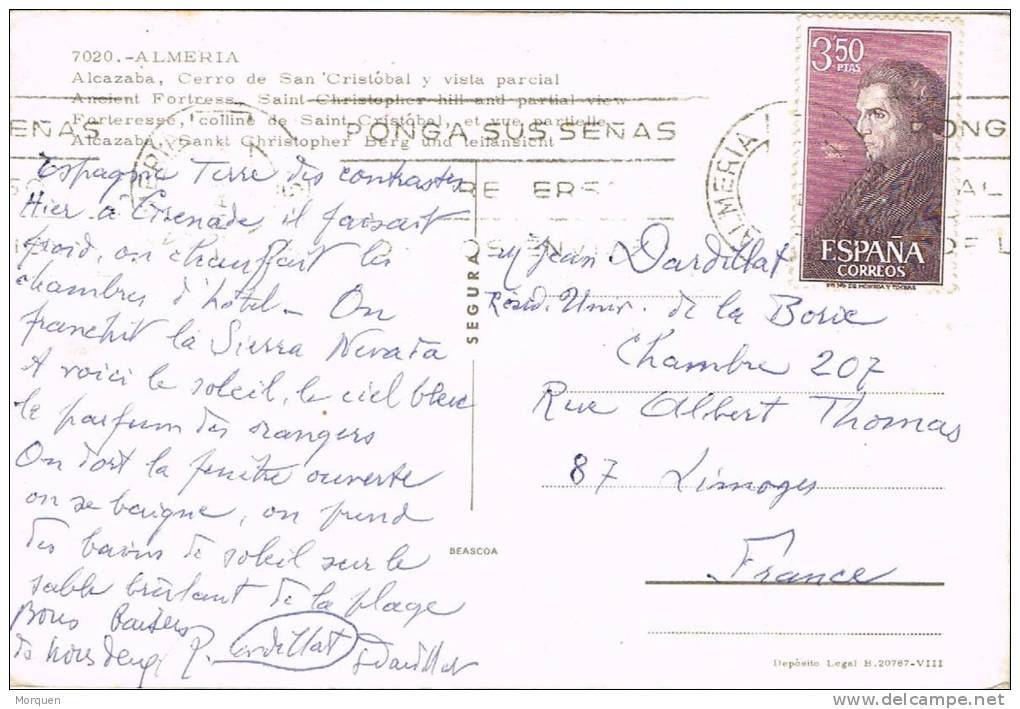 7020.-ALMERIA
Alcazaba, Cerro de San Cristóbal y vista parcial
Ancient Fortress, Saint Christopher hill and partial view
Forteresse, colline de Saint Cristóbal, et vue partielle
Alcazaba, Sankt Christopher Berg und teilansicht
3,50
PTAS
ESPAÑA
CORREOS
EÑAS
PONGA SUS SEÑAS
PONG
ALMERIA
Espagne Terre des contrastes
Hier à Grenade, il faisait
froid, on chauffait les
chambres d'hôtel – On
franchit la Sierra Nevada
A voici le soleil, le ciel bleu
le parfum des orangers
On dort la fenêtre ouverte
on se baigne, on prend
des bains de soleil sur le
sable brûlant de la plage
Bons Baisers
de nous deux
SEGURA
BEASCOA
Jean Dardillat
Résid. Univ. de la Borie
Chambre 207
Rue Albert Thomas
87 Limoges
France
Depósito Legal B.20767-VIII
Morquen
www.delcampe.net